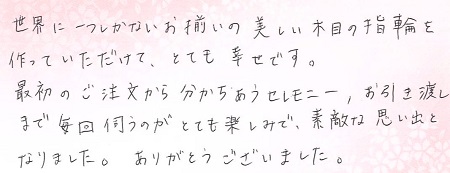 世界に一つしかないお揃いの美しい木目の指輪を
作っていただけて、とても幸せです。
最初のご注文から分かちあうセレモニー、お引き渡し
まで毎回伺うのがとても楽しみで、素敵な思い出と
なりました。ありがとうございました。